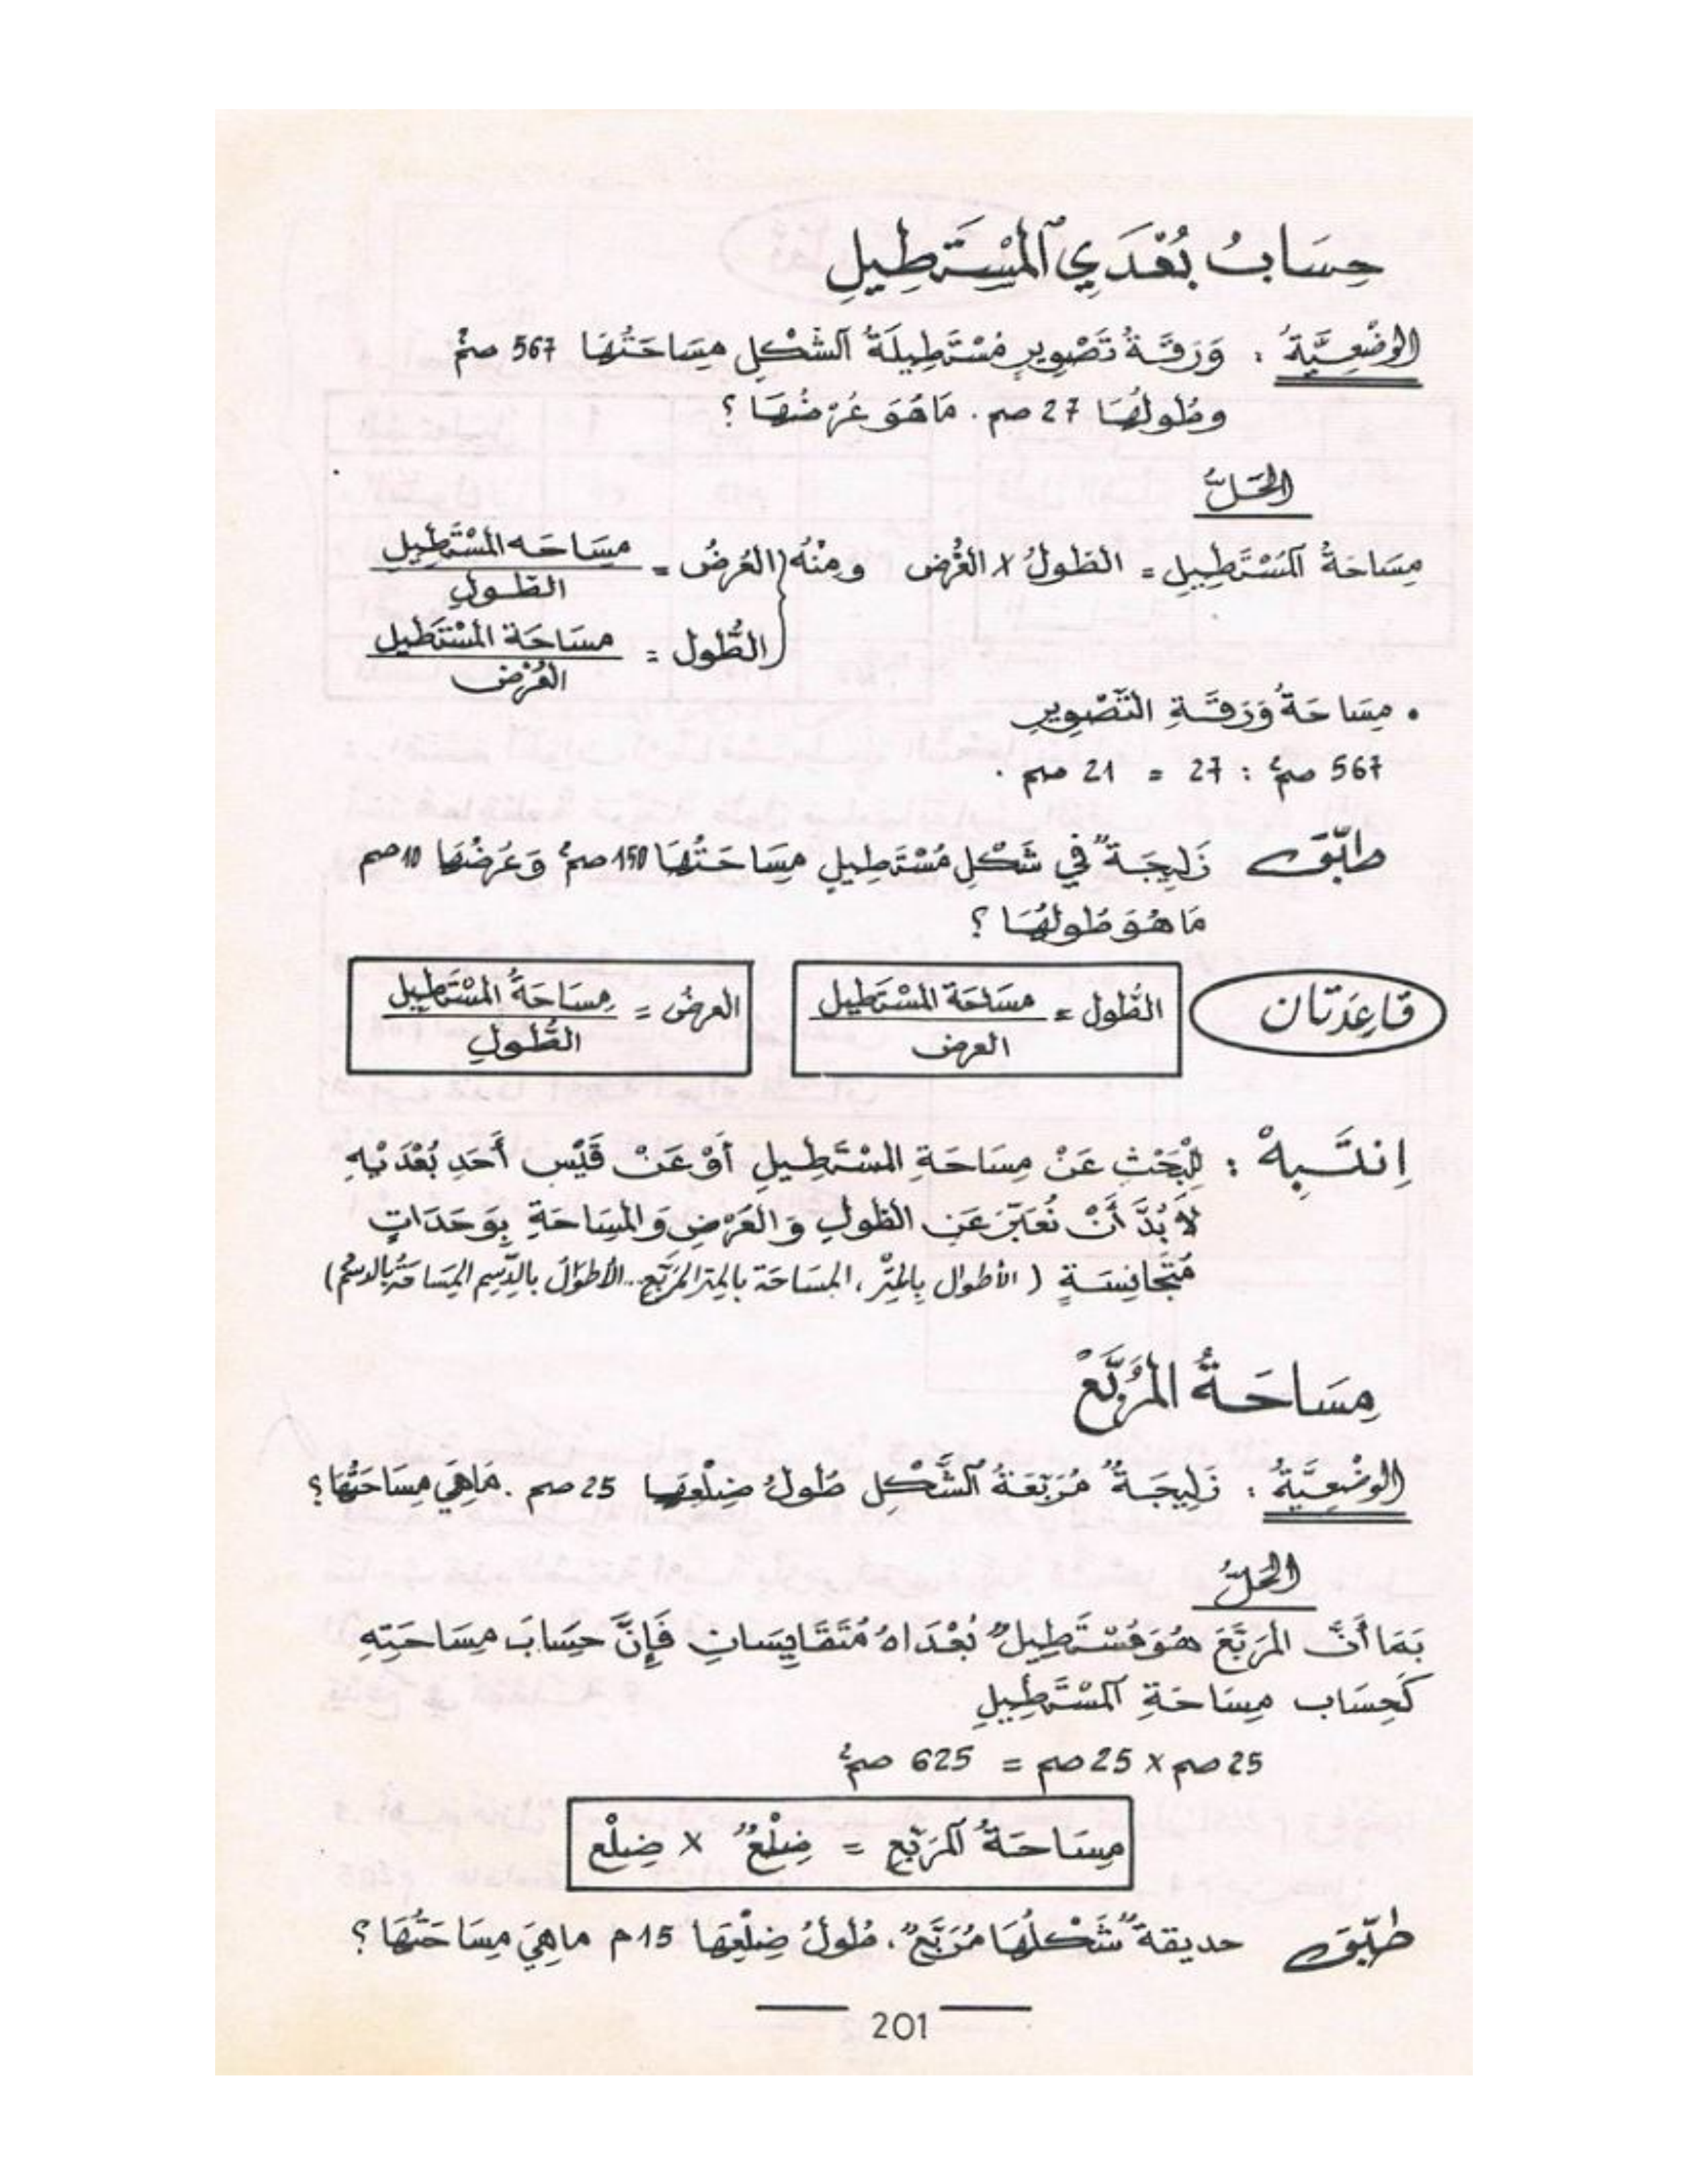 حِسَابُ بُعْدَيِ ٱلْمُسْتَطِيلِ
الوَضْعِيَّةُ : وَرَقَةُ تَصْوِيرٍ مُسْتَطِيلَةُ ٱلشَّكْلِ مِسَاحَتُهَا 567 صم²
وطُولُهَا 27 صم . مَا هُوَ عُرْضُهَا ؟
الحَلُّ
مِسَاحَةُ ٱلمُسْتَطِيلِ = الطُولُ x العُرْض ومِنْهُ العُرْضُ = مِسَاحَه المُسْتَطِيلِ / الطُّولِ
الطُّول = مسَاحَة المُسْتَطِيل / العُرْض
• مِسَاحَةُ وَرَقَةِ التَّصْوِيرِ
567 صم² : 27 = 21 صم .
طَبِّقْ زَلِيجَةٌ في شَكْلِ مُسْتَطِيلٍ مِسَاحَتُهَا 150 صم² وَعُرْضُهَا 10 صم
مَا هُوَ طُولُهَا ؟
قَاعِدَتَان الطُّول = مسَاحَة المُسْتَطِيل / العرض العرضُ = مِسَاحَةُ المُسْتَطِيلِ / الطُّولِ
اِنْتَبِهْ : لِلْبَحْثِ عَنْ مِسَاحَةِ المُسْتَطِيلِ أَوْ عَنْ قَيْسِ أَحَدِ بُعْدَيْهِ
لاَ بُدَّ أَنْ نُعَبِّرَ عَنِ الطُولِ وَ العَرْضِ وَ المِسَاحَةِ بِوَحَدَاتٍ
مُتَجَانِسَةٍ ( الأطْوَال بِالمِتْرِ ، المِسَاحَة بالمِتر المُرَبَّعِ... الأطوَالُ بالدِّسِم المِسَاحَةُ بالدسم²)
مِسَاحَةُ المُرَبَّعْ
الوَضْعِيَّةُ : زَلِيجَةٌ مُرَبَّعَةُ ٱلشَّكْلِ طُولُ ضِلْعِهَا 25 صم . مَاهِيَ مِسَاحَتُهَا ؟
الحَلُّ
بَمَا أَنَّ المُرَبَّعَ هُوَ مُسْتَطِيلٌ بُعْدَاهُ مُتَقَايِسَانِ فَإِنَّ حِسَابَ مِسَاحَتِهِ
كَحِسَاب مِسَاحَةِ ٱلمُسْتَطِيلِ
25 صم x 25 صم = 625 صم²
مِسَاحَةُ ٱلمُرَبَّعِ = ضِلْعٌ x ضِلْع
طَبِّقْ حديقةٌ شَكْلُهَا مُرَبَّعٌ . طُولُ ضِلْعِهَا 15 م ماهِيَ مِسَاحَتُهَا ؟
201